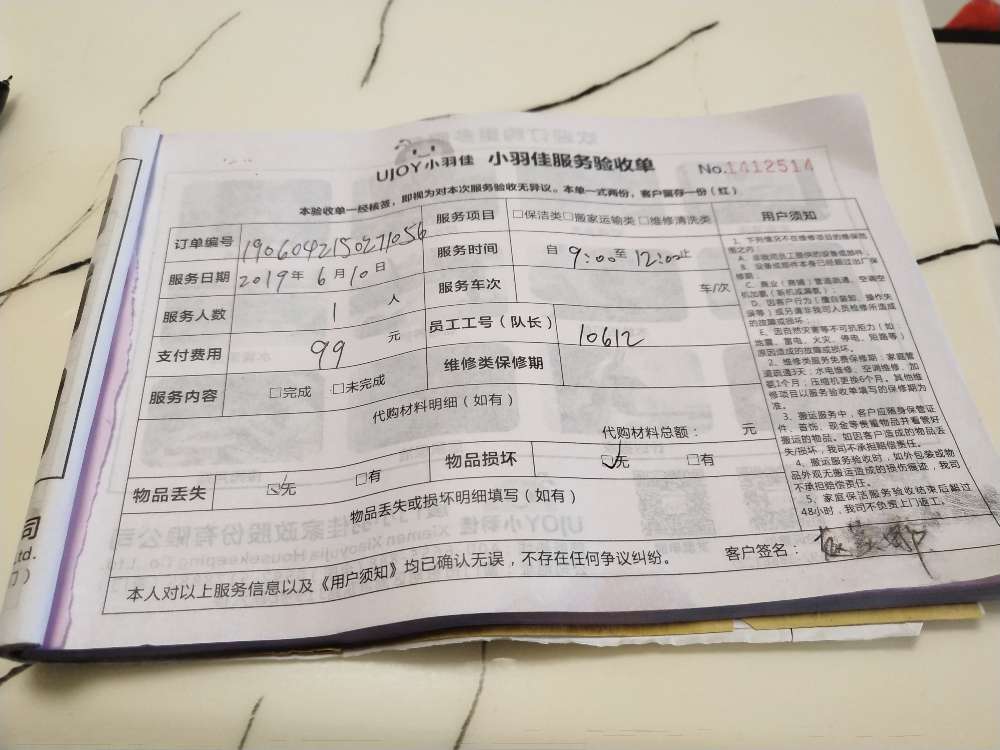 UJOY小羽佳 小羽佳服务验收单 No.1412514
本验收单一经核签，即视为对本次服务验收无异议。本单一式两份，客户留存一份（红）
订单编号 1906042150271056 服务项目 □保洁类□搬家运输类□维修清洗类
服务日期 2019年 6月10日 服务时间 自 9:00至 12:00止
服务人数 1 人 服务车次 车/次
支付费用 99 元 员工工号（队长） 10612
服务内容 □完成 □未完成 维修类保修期
代购材料明细（如有）
代购材料总额： 元
物品丢失 ☑无 □有 物品损坏 ☑无 □有
物品丢失或损坏明细填写（如有）
本人对以上服务信息以及《用户须知》均已确认无误，不存在任何争议纠纷。 客户签名：
用户须知
1、下列情况不在维修项目的维保范
围之内
A、非我司员工提供的设备或部件；
B、设备或部件本身已经超过出厂保
修期；
C、商业（商铺）管道疏通、空调空
机加氨（新机或漏氨）；
D、因客户行为（擅自装卸、操作失
误等）或另请非我司人员检修所造成
的故障或损坏；
E、因自然灾害等不可抗拒力（如：
地震、雷电、火灾、停电、短路等）
原因造成的故障或损坏。
2、维修类服务免费保修期：家庭管
道疏通3天；水电维修、空调维修、加
氨1个月；压缩机更换6个月。其他维
修项目以服务验收单填写的保修期为
准。
3、搬运服务中，客户应随身保管证
件、首饰、现金等贵重物品并看管好
搬运的物品。如因客户造成的物品丢
失/损坏，我司不承担赔偿责任。
4、搬运服务验收时，如外包装或物
品外观无搬运造成的损伤痕迹，我司
不承担赔偿责任。
5、家庭保洁服务验收结束后超过
48小时，我司不负责上门返工。
司
Ltd.